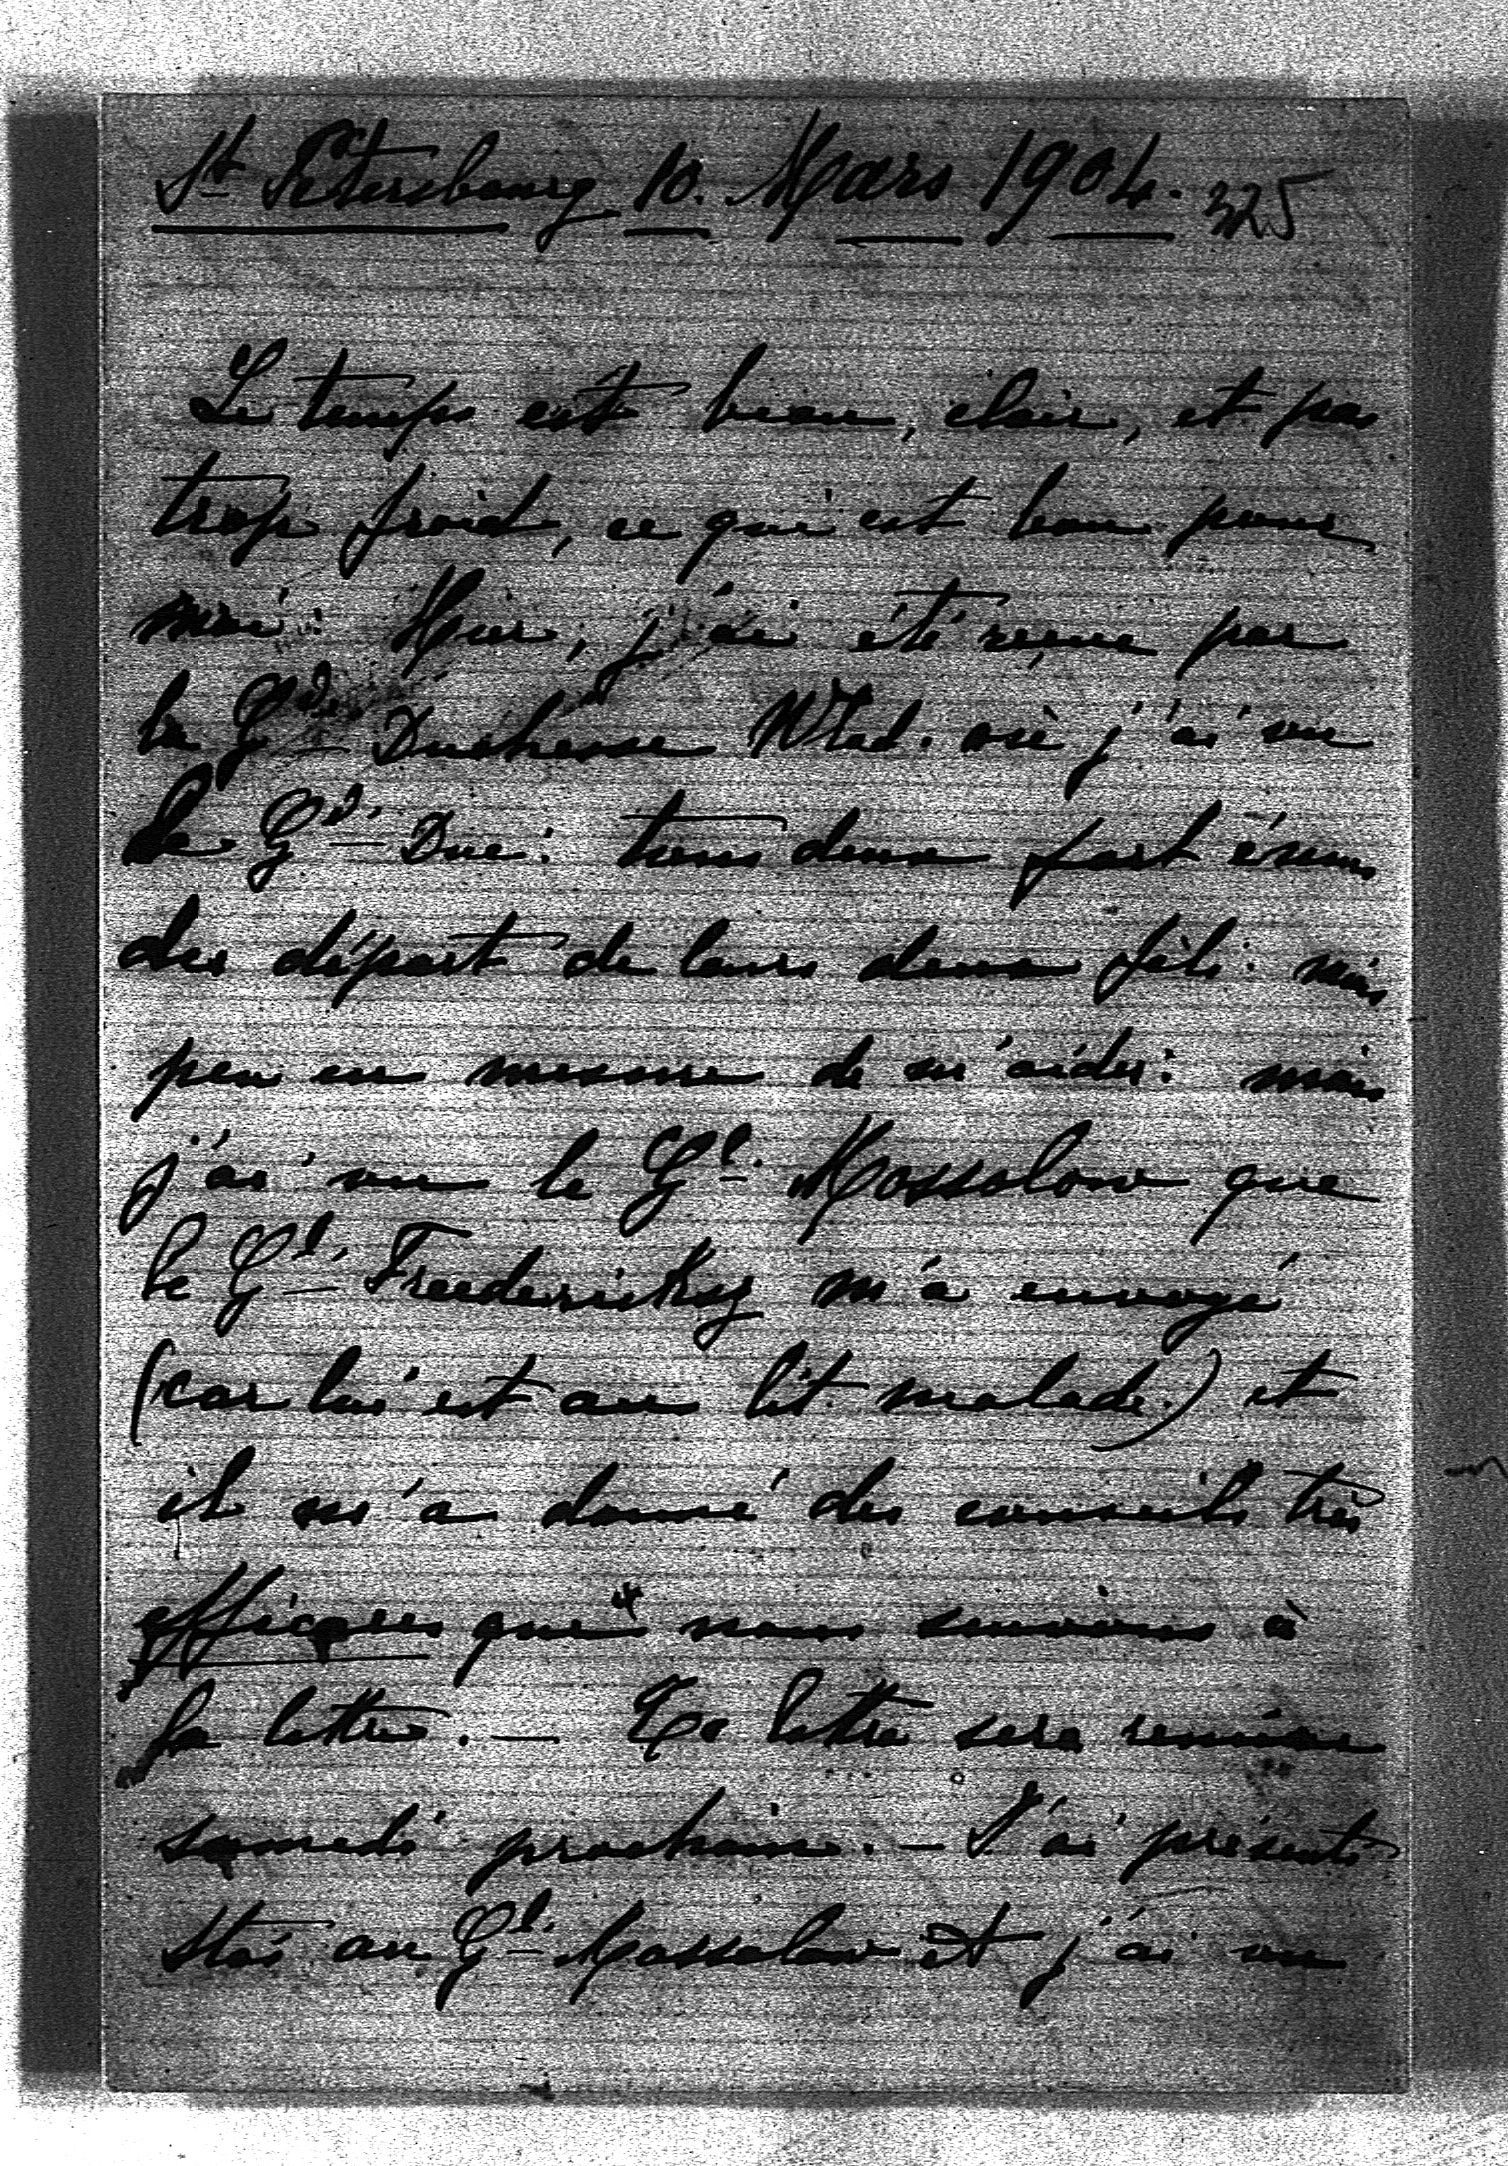 St Pétersbourg 10. Mars 1904. 325
Le temps est beau, clair, et pas
trop froid, ce qui est bon pour
moi. Hier, j'ai été reçue par
la Gde Duchesse Wlad. où j'ai vu
le Gd. Duc: tous deux fort émus
des départ de leurs deux fils: mais
peu en mesure de m'aider: mais
j'ai vu le Gl. Mossolow que
le Gl. Freedericksz m'a envoyé
(car lui est au lit malade.) et
il m'a donné des conseils très
efficaces que nous suivrons à
la lettre. — Ta lettre sera remise
samedi prochain. — J'ai présenté
au Gl. Mossolow et j'ai vu